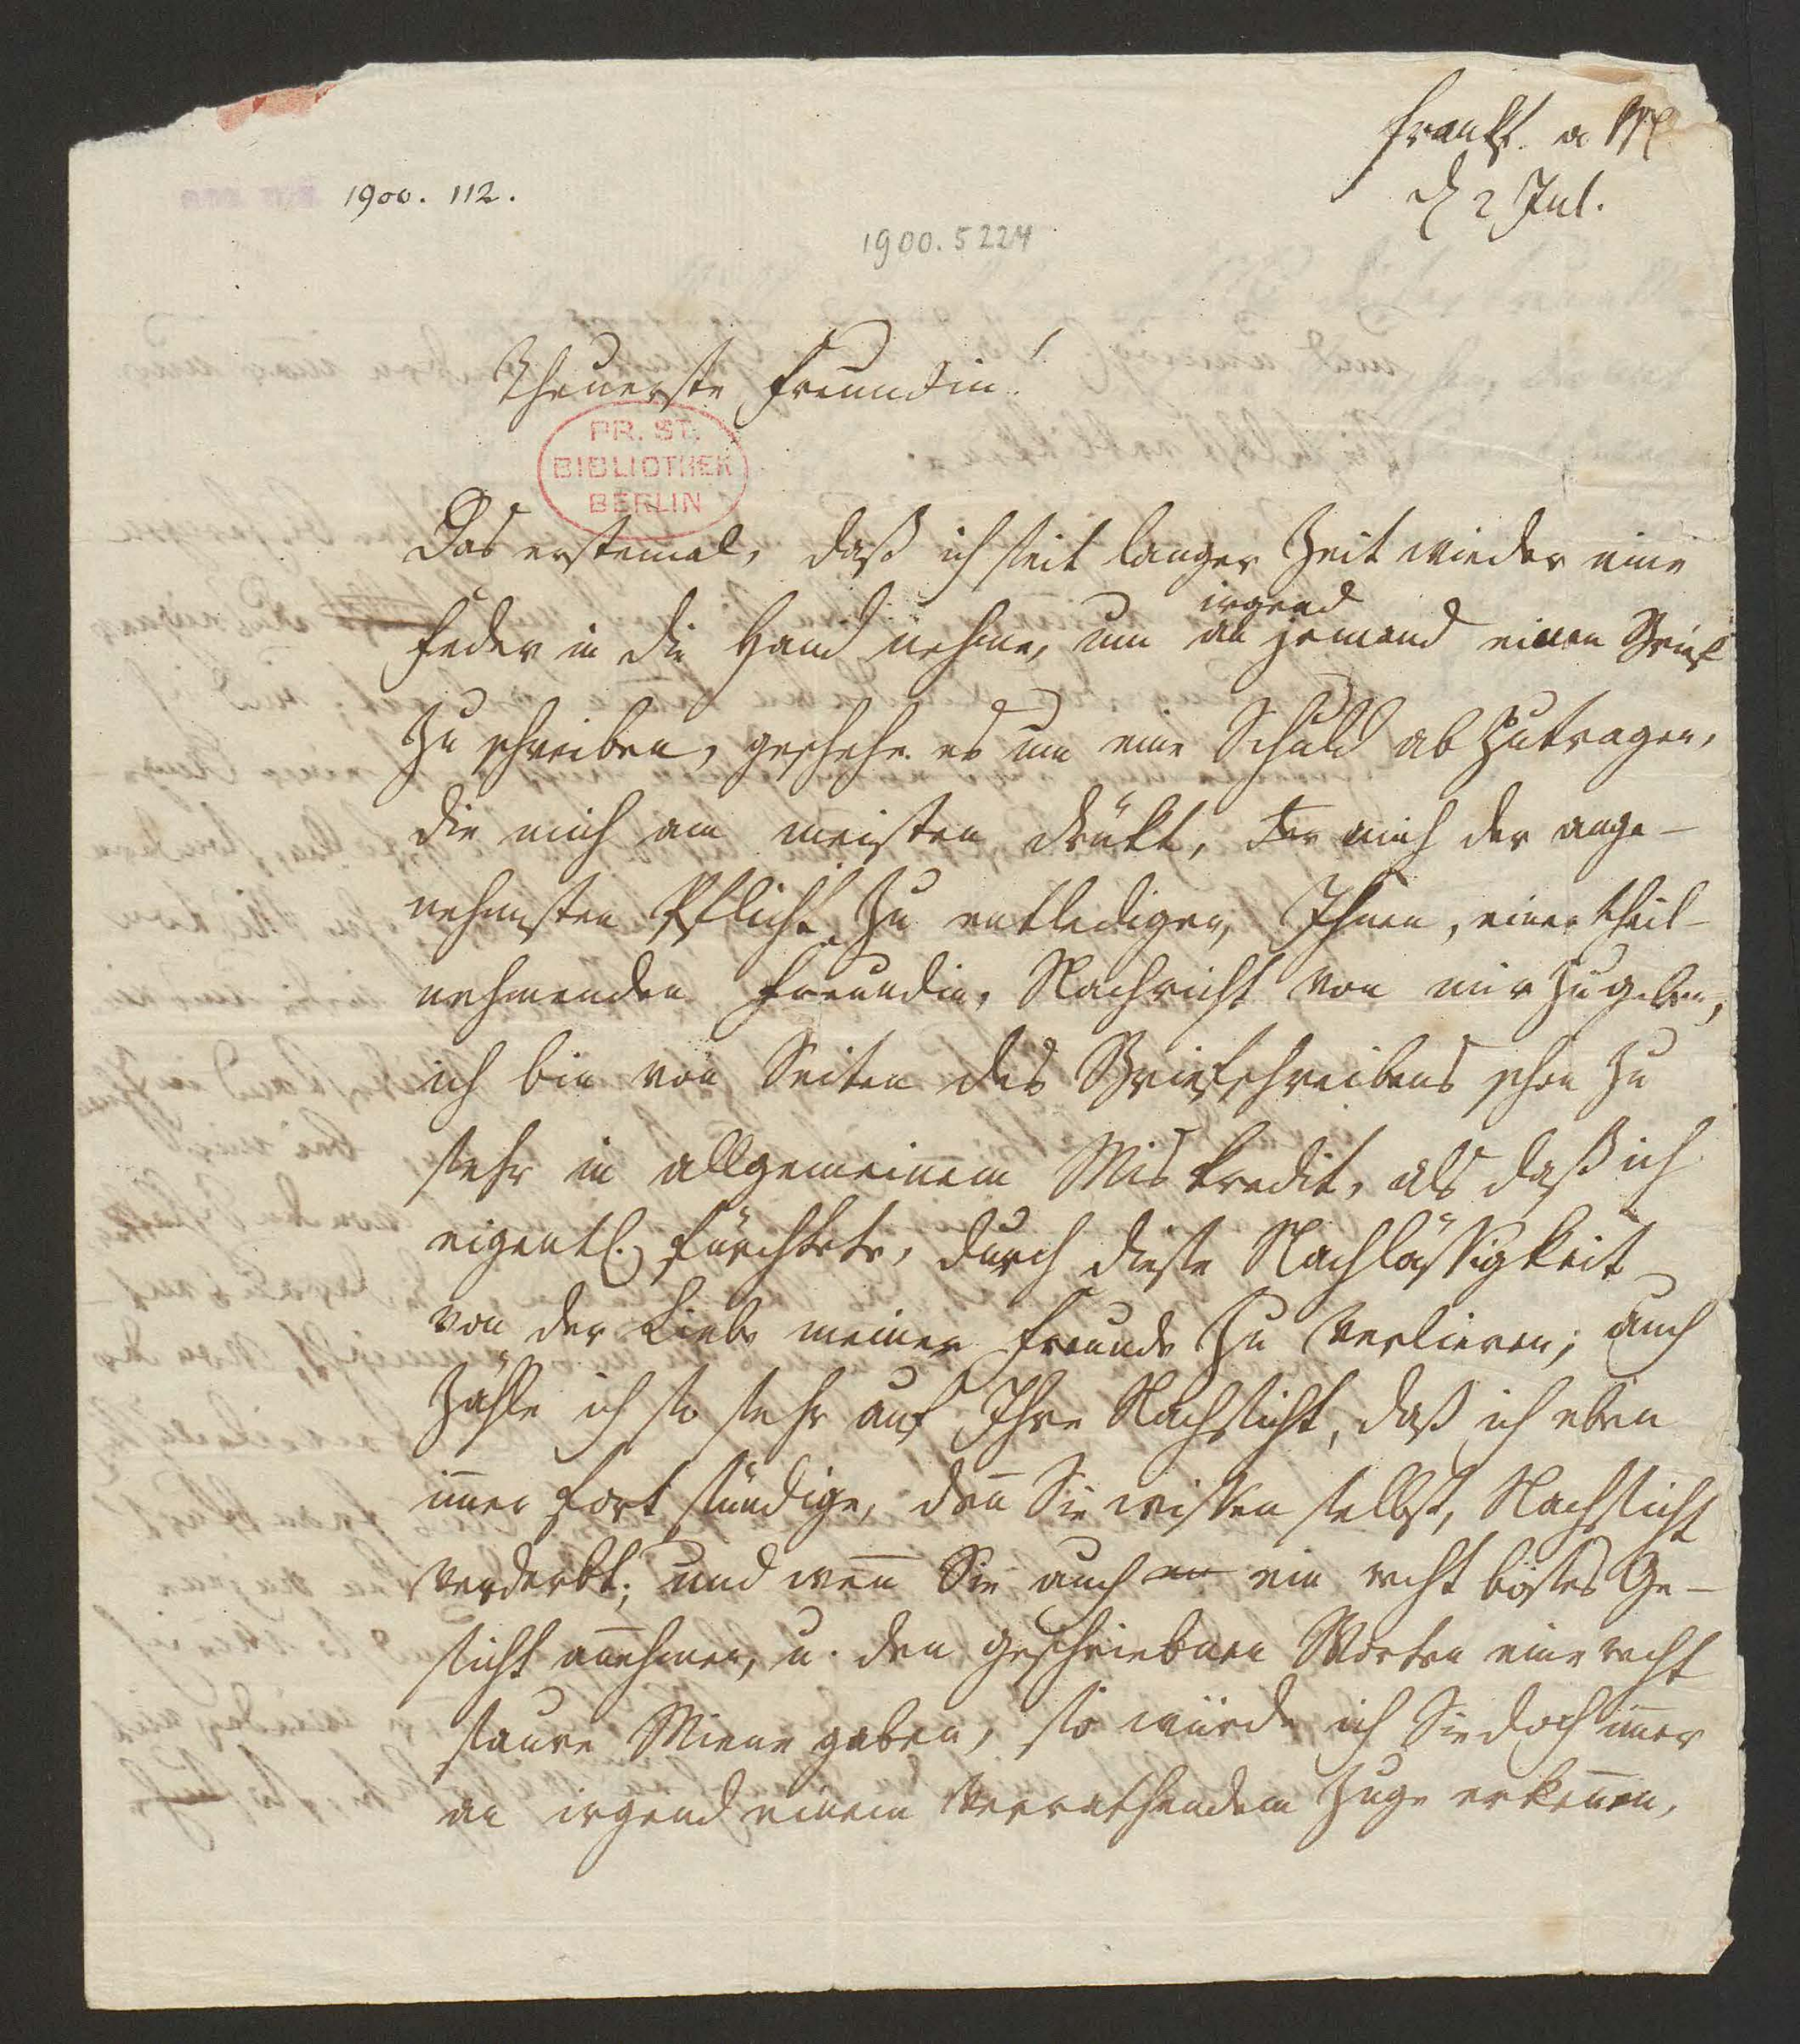 Frankf. a M
d 2 Jul.
1900. 112.
1900. 5224
Theuerste Freundin!
PR. ST.
BIBLIOTHEK
BERLIN
Das erstemal, daß ich seit langer Zeit wieder eine
irgend
Feder in die Hand nehme, um an jemand einen Brief
zu schreiben, geschehe es um eine Schuld abzutragen,
die mich am meisten drükt, mich der ange-
nehmsten Pflicht zu entledigen, Ihnen, einer theil-
nehmenden Freundin, Nachricht von mir zu geben,
ich bin von Seiten des Briefschreibens schon zu
sehr in allgemeinem Miskredit, als daß ich
eigentl. fürchtete, durch diese Nachlässigkeit
von der Liebe meiner Freunde zu verlieren; auch
zähle ich so sehr auf Ihre Nachsicht, daß ich eben
im̅er fort sündige, den̅ Sie wissen selbst, Nachsicht
verderbt; und wen̅ Sie auch ein recht böses Ge-
sicht an̅ehmen, u. den geschriebnen Worten eine recht
saure Miene geben, so würde ich Sie doch im̅er
an irgend einem verrathendem Zuge erken̅en,